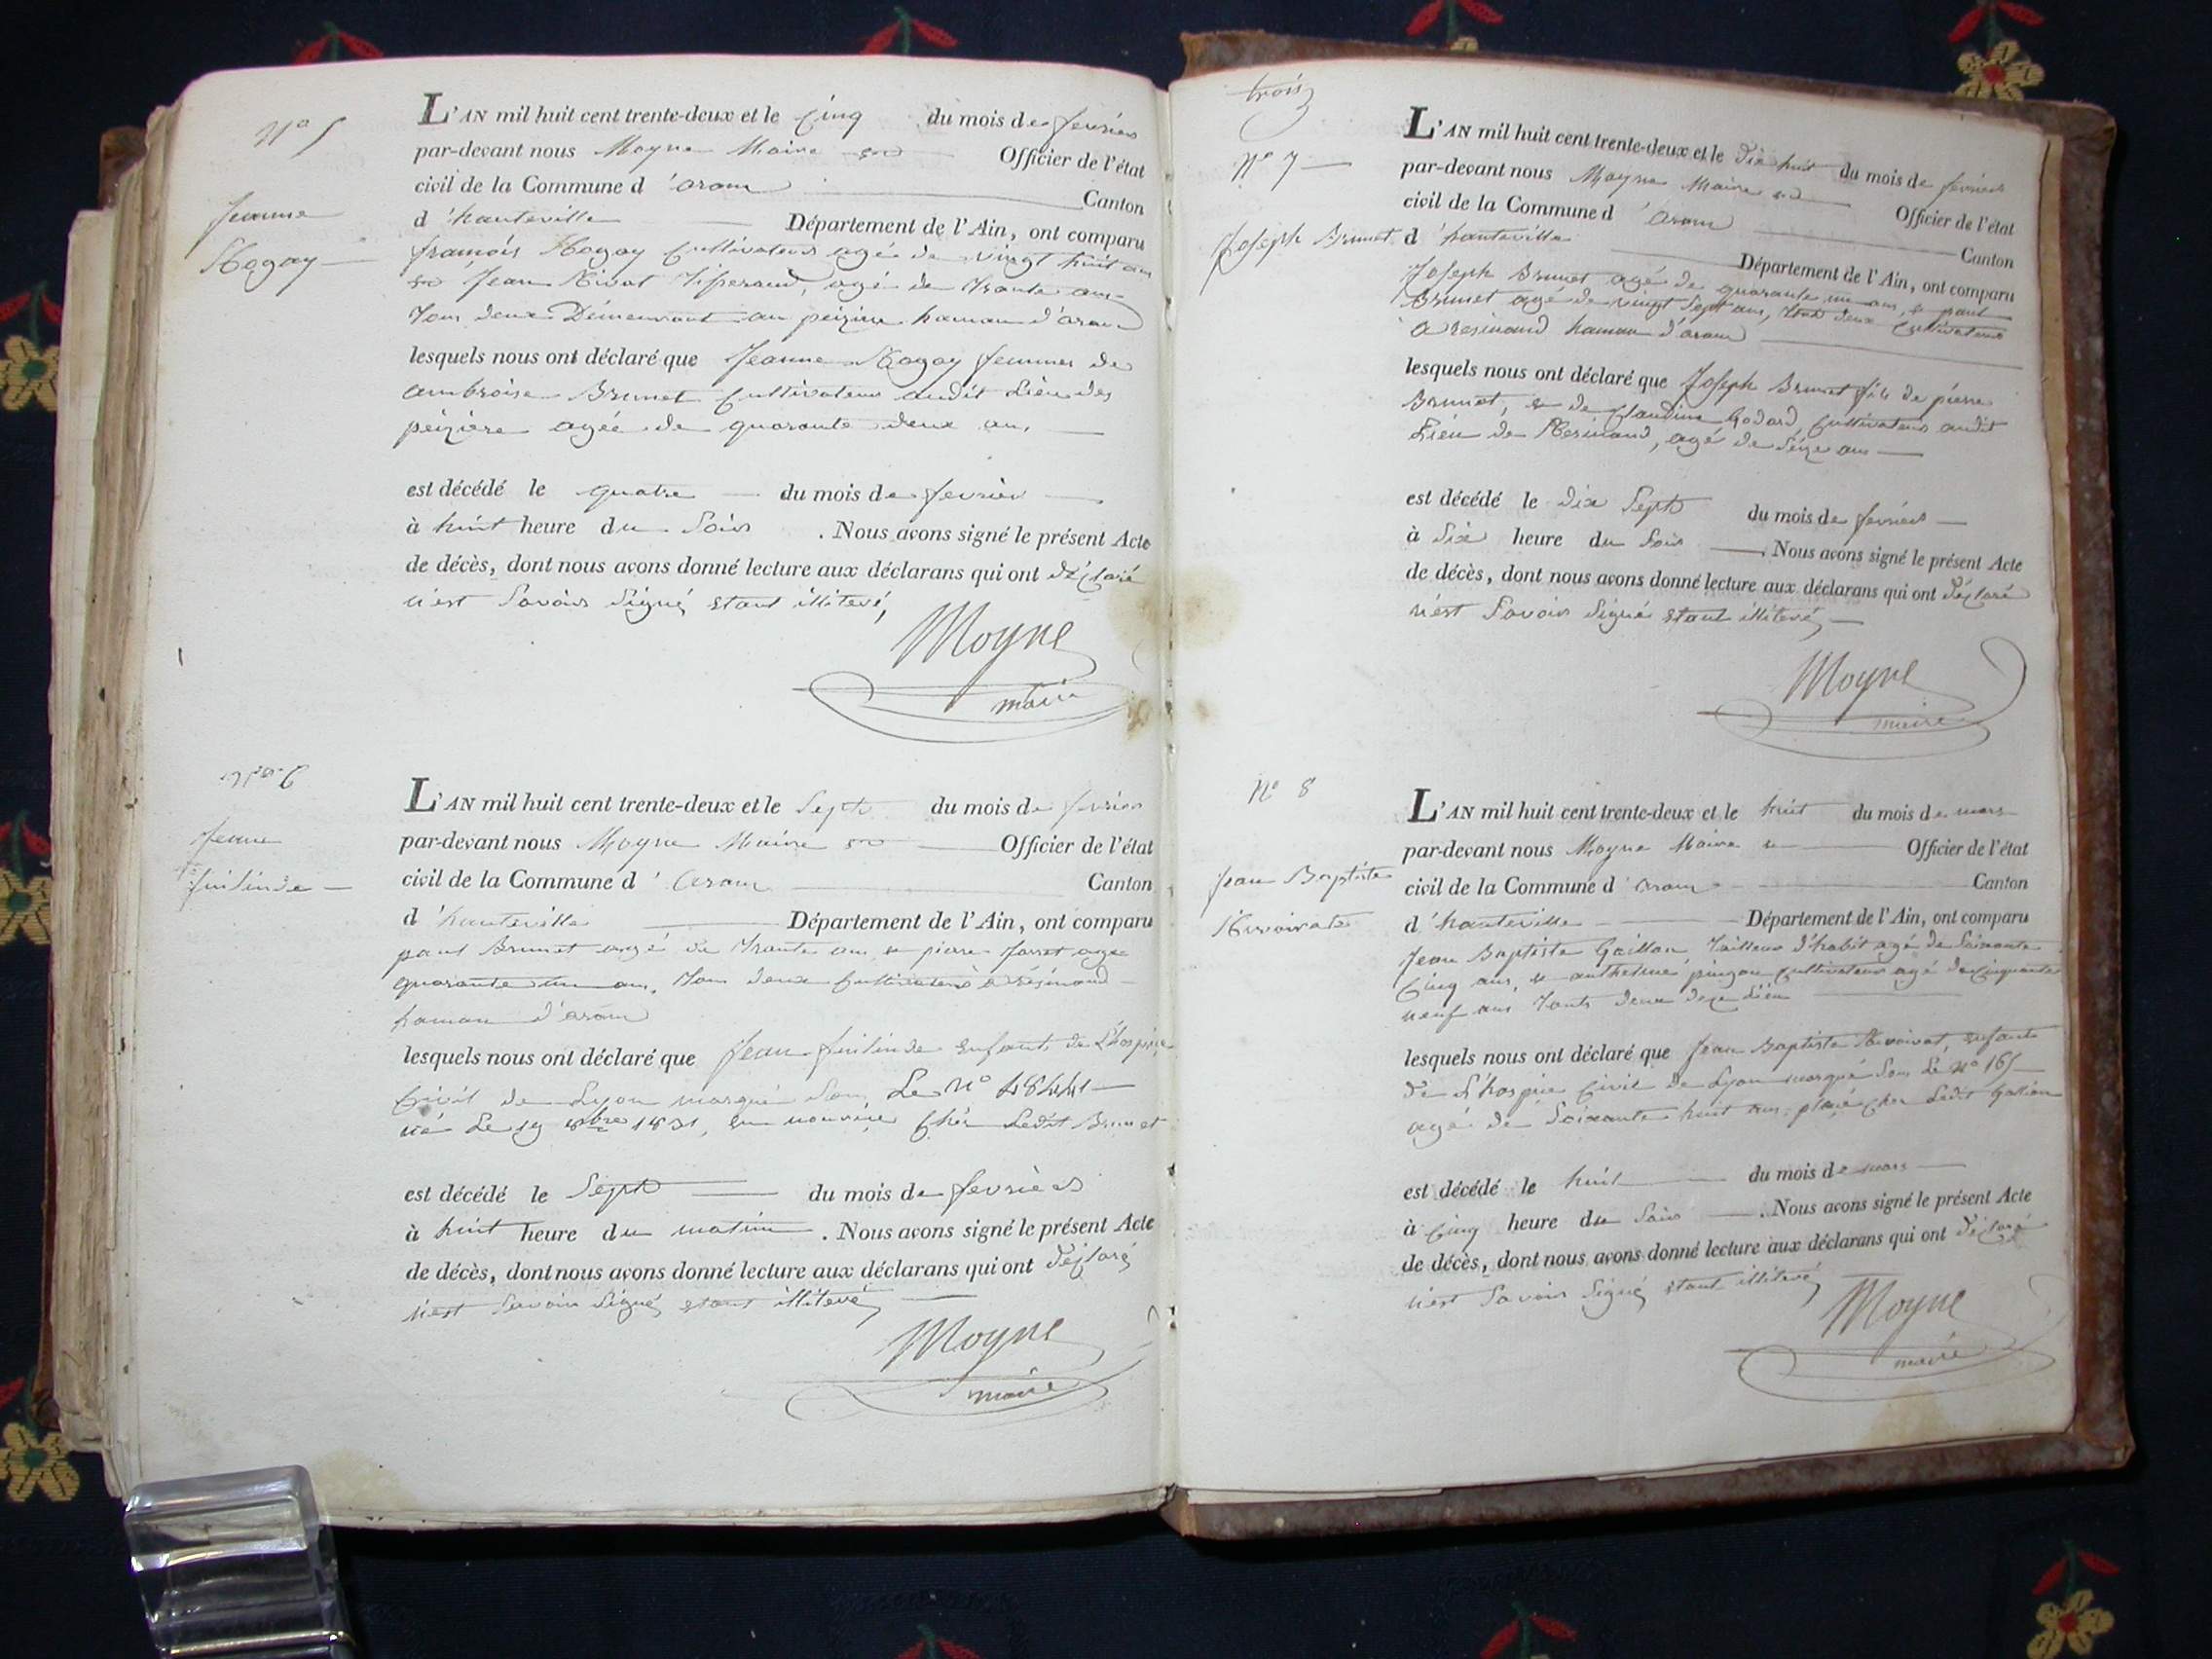 N° 5
Jeanne
Rogay
L'AN mil huit cent trente-deux et le cinq du mois de fevrier
par-devant nous Moyne Maire Officier de l'état
civil de la Commune d'aran Canton
d'hauteville Département de l'Ain, ont comparu
francois Rogay cultivateur agé de vingt huit ans
Jean agé de trante ans
tous deux Demeurant au hamau d'aran
lesquels nous ont déclaré que Jeanne Rogay femme de
ambroise Brunet cultivateur audit Lieu des
peizière agée de quarante deux ans
est décédé le quatre du mois de fevrier
à huit heure du Soir . Nous avons signé le présent Acte
de décès, dont nous avons donné lecture aux déclarans qui ont déclaré
n'est Savoir Signé etant illiteré,
Moyne
maire
N° 6
Jean
L'AN mil huit cent trente-deux et le Sept du mois de fevrier
par-devant nous Moyne Maire Officier de l'état
civil de la Commune d'aran Canton
d'hauteville Département de l'Ain, ont comparu
paul Brunet agé de trante ans & pierre agé
quarante un ans, tous deux cultivateurs à résinand
hamau d'aran
lesquels nous ont déclaré que Jean enfant de L'hospice
Civil de Lyon marqué Sous Le N° 48441
né Le 19 8bre 1831, en nourice chez Ledit Brunet
est décédé le Sept du mois de fevrier
à huit heure du matin . Nous avons signé le présent Acte
de décès, dont nous avons donné lecture aux déclarans qui ont déclaré
n'est Savoir Signé etant illiteré,
Moyne
maire
trois
N° 7
Joseph Brunet
L'AN mil huit cent trente-deux et le dix huit du mois de fevrier
par-devant nous Moyne Maire Officier de l'état
civil de la Commune d'aran Canton
d'hauteville Département de l'Ain, ont comparu
Joseph Brunet agé de quarante un ans, & paul
Brunet agé de vingt Sept ans, tous deux cultivateurs
à resinand hamau d'aran
lesquels nous ont déclaré que Joseph Brunet fils de pierre
Brunet, & de Claudine Godard, cultivateur audit
Lieu de Resinand, agé de Seize ans
est décédé le dix Sept du mois de fevrier
à Six heure du Soir . Nous avons signé le présent Acte
de décès, dont nous avons donné lecture aux déclarans qui ont déclaré
n'est Savoir Signé etant illiteré,
Moyne
maire
N° 8
Jean Baptiste
L'AN mil huit cent trente-deux et le huit du mois de mars
par-devant nous Moyne Maire Officier de l'état
civil de la Commune d'aran Canton
d'hauteville Département de l'Ain, ont comparu
Jean Baptiste Gaillon tailleur d'habit agé de Soixante
Cinq ans, & anthelme pinzon cultivateur agé de cinquante
neuf ans touts deux Lieu
lesquels nous ont déclaré que Jean Baptiste enfant
de L'hospice Civil de Lyon marqué Sous Le N° 165
agé de Soixante huit ans, placé chez Ledit Gallion
est décédé le huit du mois de mars
à Cinq heure du Soir . Nous avons signé le présent Acte
de décès, dont nous avons donné lecture aux déclarans qui ont déclaré
n'est Savoir Signé etant illiteré,
Moyne
maire